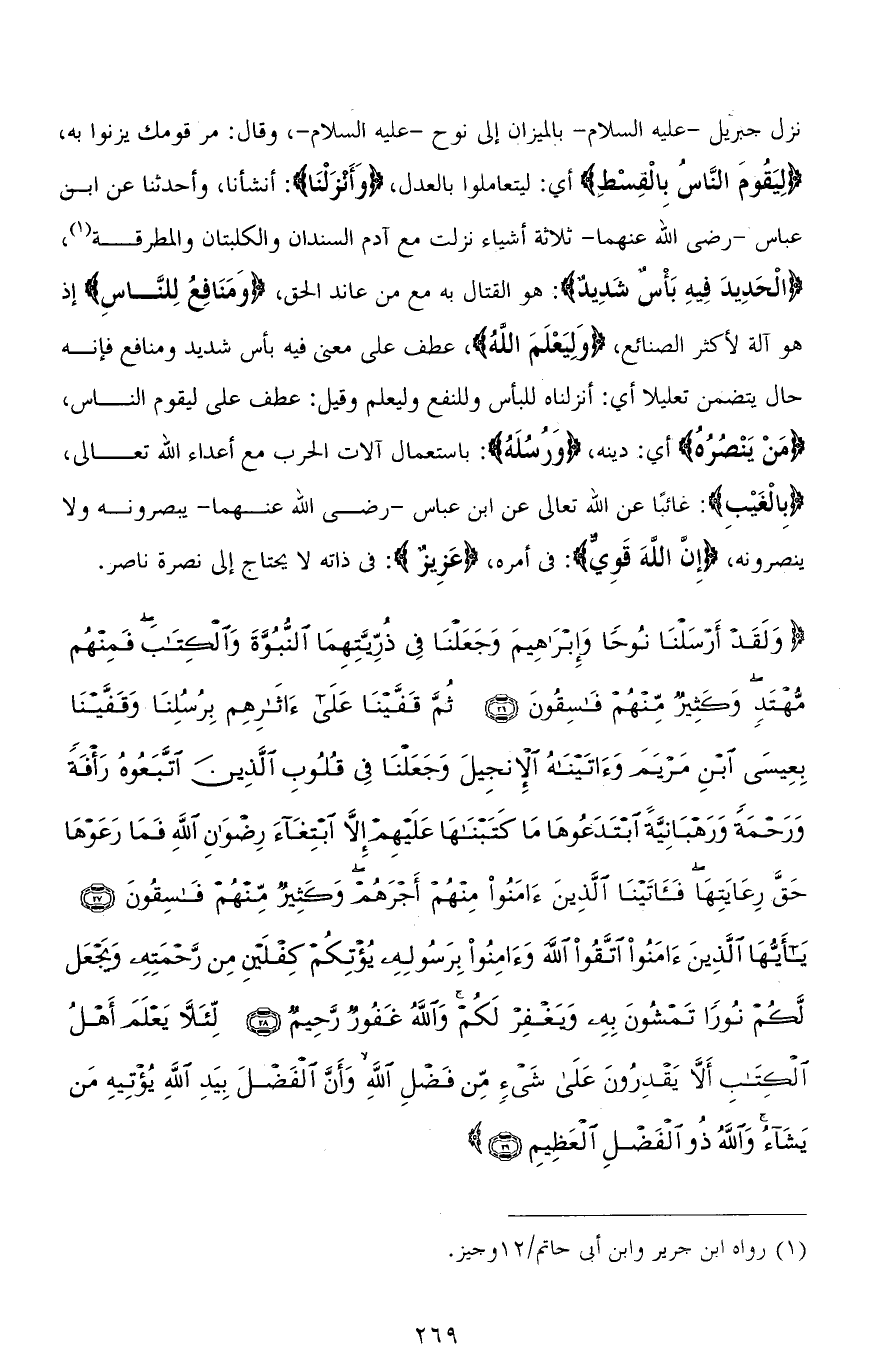 نزل جبريل -عليه السلام- بالميزان إلى نوح -عليه السلام-، وقال: مر قومك يزنوا به،
﴿لِيَقُومَ النَّاسُ بِالْقِسْطِ﴾ أي: ليتعاملوا بالعدل، ﴿وَأَنْزَلْنَا﴾: أنشأنا، وأحدثنا عن ابن
عباس -رضى الله عنهما- ثلاثة أشياء نزلت مع آدم السندان والكلبتان والمطرقة(١)،
﴿الْحَدِيدَ فِيهِ بَأْسٌ شَدِيدٌ﴾: هو القتال به مع من عاند الحق، ﴿وَمَنَافِعُ لِلنَّاسِ﴾ إذ
هو آلة لأكثر الصنائع، ﴿وَلِيَعْلَمَ اللَّهُ﴾، عطف على معنى فيه بأس شديد ومنافع فإنه
حال يتضمن تعليلا أي: أنزلناه للبأس وللنفع وليعلم وقيل: عطف على ليقوم الناس،
﴿مَنْ يَنْصُرُهُ﴾ أي: دينه، ﴿وَرُسُلَهُ﴾: باستعمال آلات الحرب مع أعداء الله تعالى،
﴿بِالْغَيْبِ﴾: غائبًا عن الله تعالى عن ابن عباس -رضى الله عنهما- يبصرونه ولا
ينصرونه، ﴿إِنَّ اللَّهَ قَوِيٌّ﴾: فى أمره، ﴿عَزِيزٌ﴾: فى ذاته لا يحتاج إلى نصرة ناصر.
﴿وَلَقَدْ أَرْسَلْنَا نُوحًا وَإِبْرَٰهِيمَ وَجَعَلْنَا فِى ذُرِّيَّتِهِمَا ٱلنُّبُوَّةَ وَٱلْكِتَٰبَ ۖ فَمِنْهُم
مُّهْتَدٍ ۖ وَكَثِيرٌ مِّنْهُمْ فَٰسِقُونَ ﴿٢٦﴾ ثُمَّ قَفَّيْنَا عَلَىٰٓ ءَاثَٰرِهِم بِرُسُلِنَا وَقَفَّيْنَا
بِعِيسَى ٱبْنِ مَرْيَمَ وَءَاتَيْنَٰهُ ٱلْإِنجِيلَ وَجَعَلْنَا فِى قُلُوبِ ٱلَّذِينَ ٱتَّبَعُوهُ رَأْفَةً
وَرَحْمَةً وَرَهْبَانِيَّةً ٱبْتَدَعُوهَا مَا كَتَبْنَٰهَا عَلَيْهِمْ إِلَّا ٱبْتِغَآءَ رِضْوَٰنِ ٱللَّهِ فَمَا رَعَوْهَا
حَقَّ رِعَايَتِهَا ۖ فَـَٔاتَيْنَا ٱلَّذِينَ ءَامَنُوا۟ مِنْهُمْ أَجْرَهُمْ ۖ وَكَثِيرٌ مِّنْهُمْ فَٰسِقُونَ ﴿٢٧﴾
يَٰٓأَيُّهَا ٱلَّذِينَ ءَامَنُوا۟ ٱتَّقُوا۟ ٱللَّهَ وَءَامِنُوا۟ بِرَسُولِهِۦ يُؤْتِكُمْ كِفْلَيْنِ مِن رَّحْمَتِهِۦ وَيَجْعَل
لَّكُمْ نُورًا تَمْشُونَ بِهِۦ وَيَغْفِرْ لَكُمْ ۚ وَٱللَّهُ غَفُورٌ رَّحِيمٌ ﴿٢٨﴾ لِّئَلَّا يَعْلَمَ أَهْلُ
ٱلْكِتَٰبِ أَلَّا يَقْدِرُونَ عَلَىٰ شَىْءٍ مِّن فَضْلِ ٱللَّهِ ۙ وَأَنَّ ٱلْفَضْلَ بِيَدِ ٱللَّهِ يُؤْتِيهِ مَن
يَشَآءُ ۚ وَٱللَّهُ ذُو ٱلْفَضْلِ ٱلْعَظِيمِ ﴿٢٩﴾﴾
(١) رواه ابن جرير وابن أبى حاتم/١٢وجيز.
٢٦٩